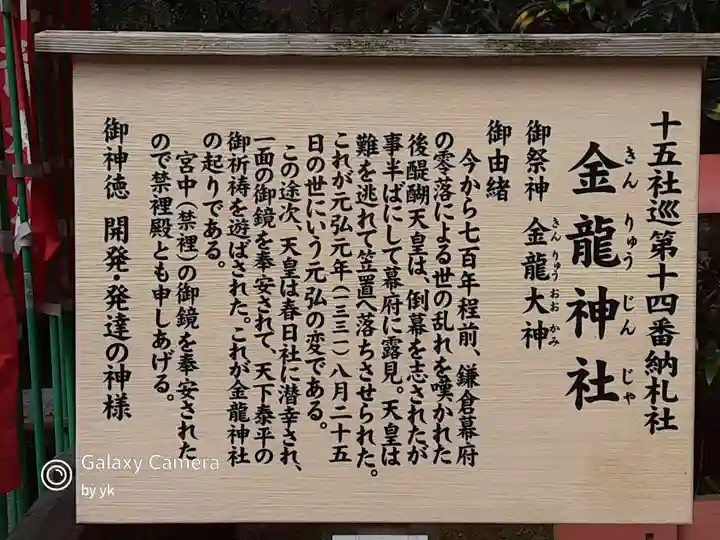 十五社巡第十四番納札社
金龍神社
きんりゅうじんじゃ
御祭神 金龍大神
きんりゅうおおかみ
御由緒
今から七百年程前、鎌倉幕府
の零落による世の乱れを嘆かれた
後醍醐天皇は、倒幕を志されたが
事半ばにして幕府に露見。天皇は
難を逃れて笠置へ落ちさせられた。
これが元弘元年(一三三一)八月二十五
日の世にいう元弘の変である。
この途次、天皇は春日社に潜幸され、
一面の御鏡を奉安されて、天下泰平の
御祈祷を遊ばされた。これが金龍神社
の起りである。
宮中(禁裡)の御鏡を奉安された
ので禁裡殿とも申しあげる。
御神徳 開発・発達の神様
Galaxy Camera
by yk